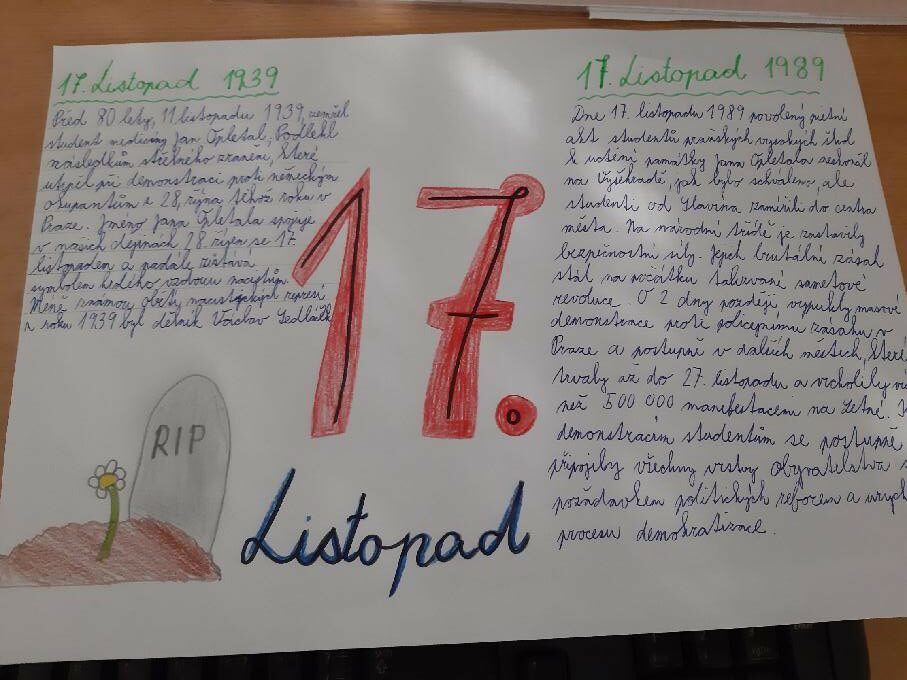 17. Listopad 1939
Před 80 lety, 11 listopadu 1939, zemřel
student medicíny Jan Opletal, Podlehl
následkům střelného zranění, které
utrpěl při demonstraci proti německým
okupantům z 28, října téhož roku v
Praze. Jméno Jana Opletala spojuje
v našich dějinách 28. říjen se 17.
listopadem a nadále zůstává
symbolem českého vzdoru nacistům.
Méně známou obětí nacistických represí
z roku 1939 byl dělník Václav Sedláček
RIP
17.
Listopad
17. Listopad 1989
Dne 17. listopadu 1989 povolený pietní
akt studentů pražských vysokých škol
k uctění památky Jana Opletala seskončil
na Vyšehradě, jak bylo schváleno, ale
studenti od Slavína zamířili do centra
města. Na národní třídě je zastavily
bezpečnostní síly. Jejich brutální zásah
stál na počátku takzvané sametové
revoluce. O 2 dny později, vypukly masové
demonstrace proti policejnímu zásahu v
Praze a postupně v dalších městech, které
trvaly až do 27. listopadu a vrcholily
než 500 000 manifestacemi na Letné. K
demonstracím studentům se postupně
připojily všechny vrstvy obyvatelstva s
požadavkem politických reforem a
procesu demokratizace.